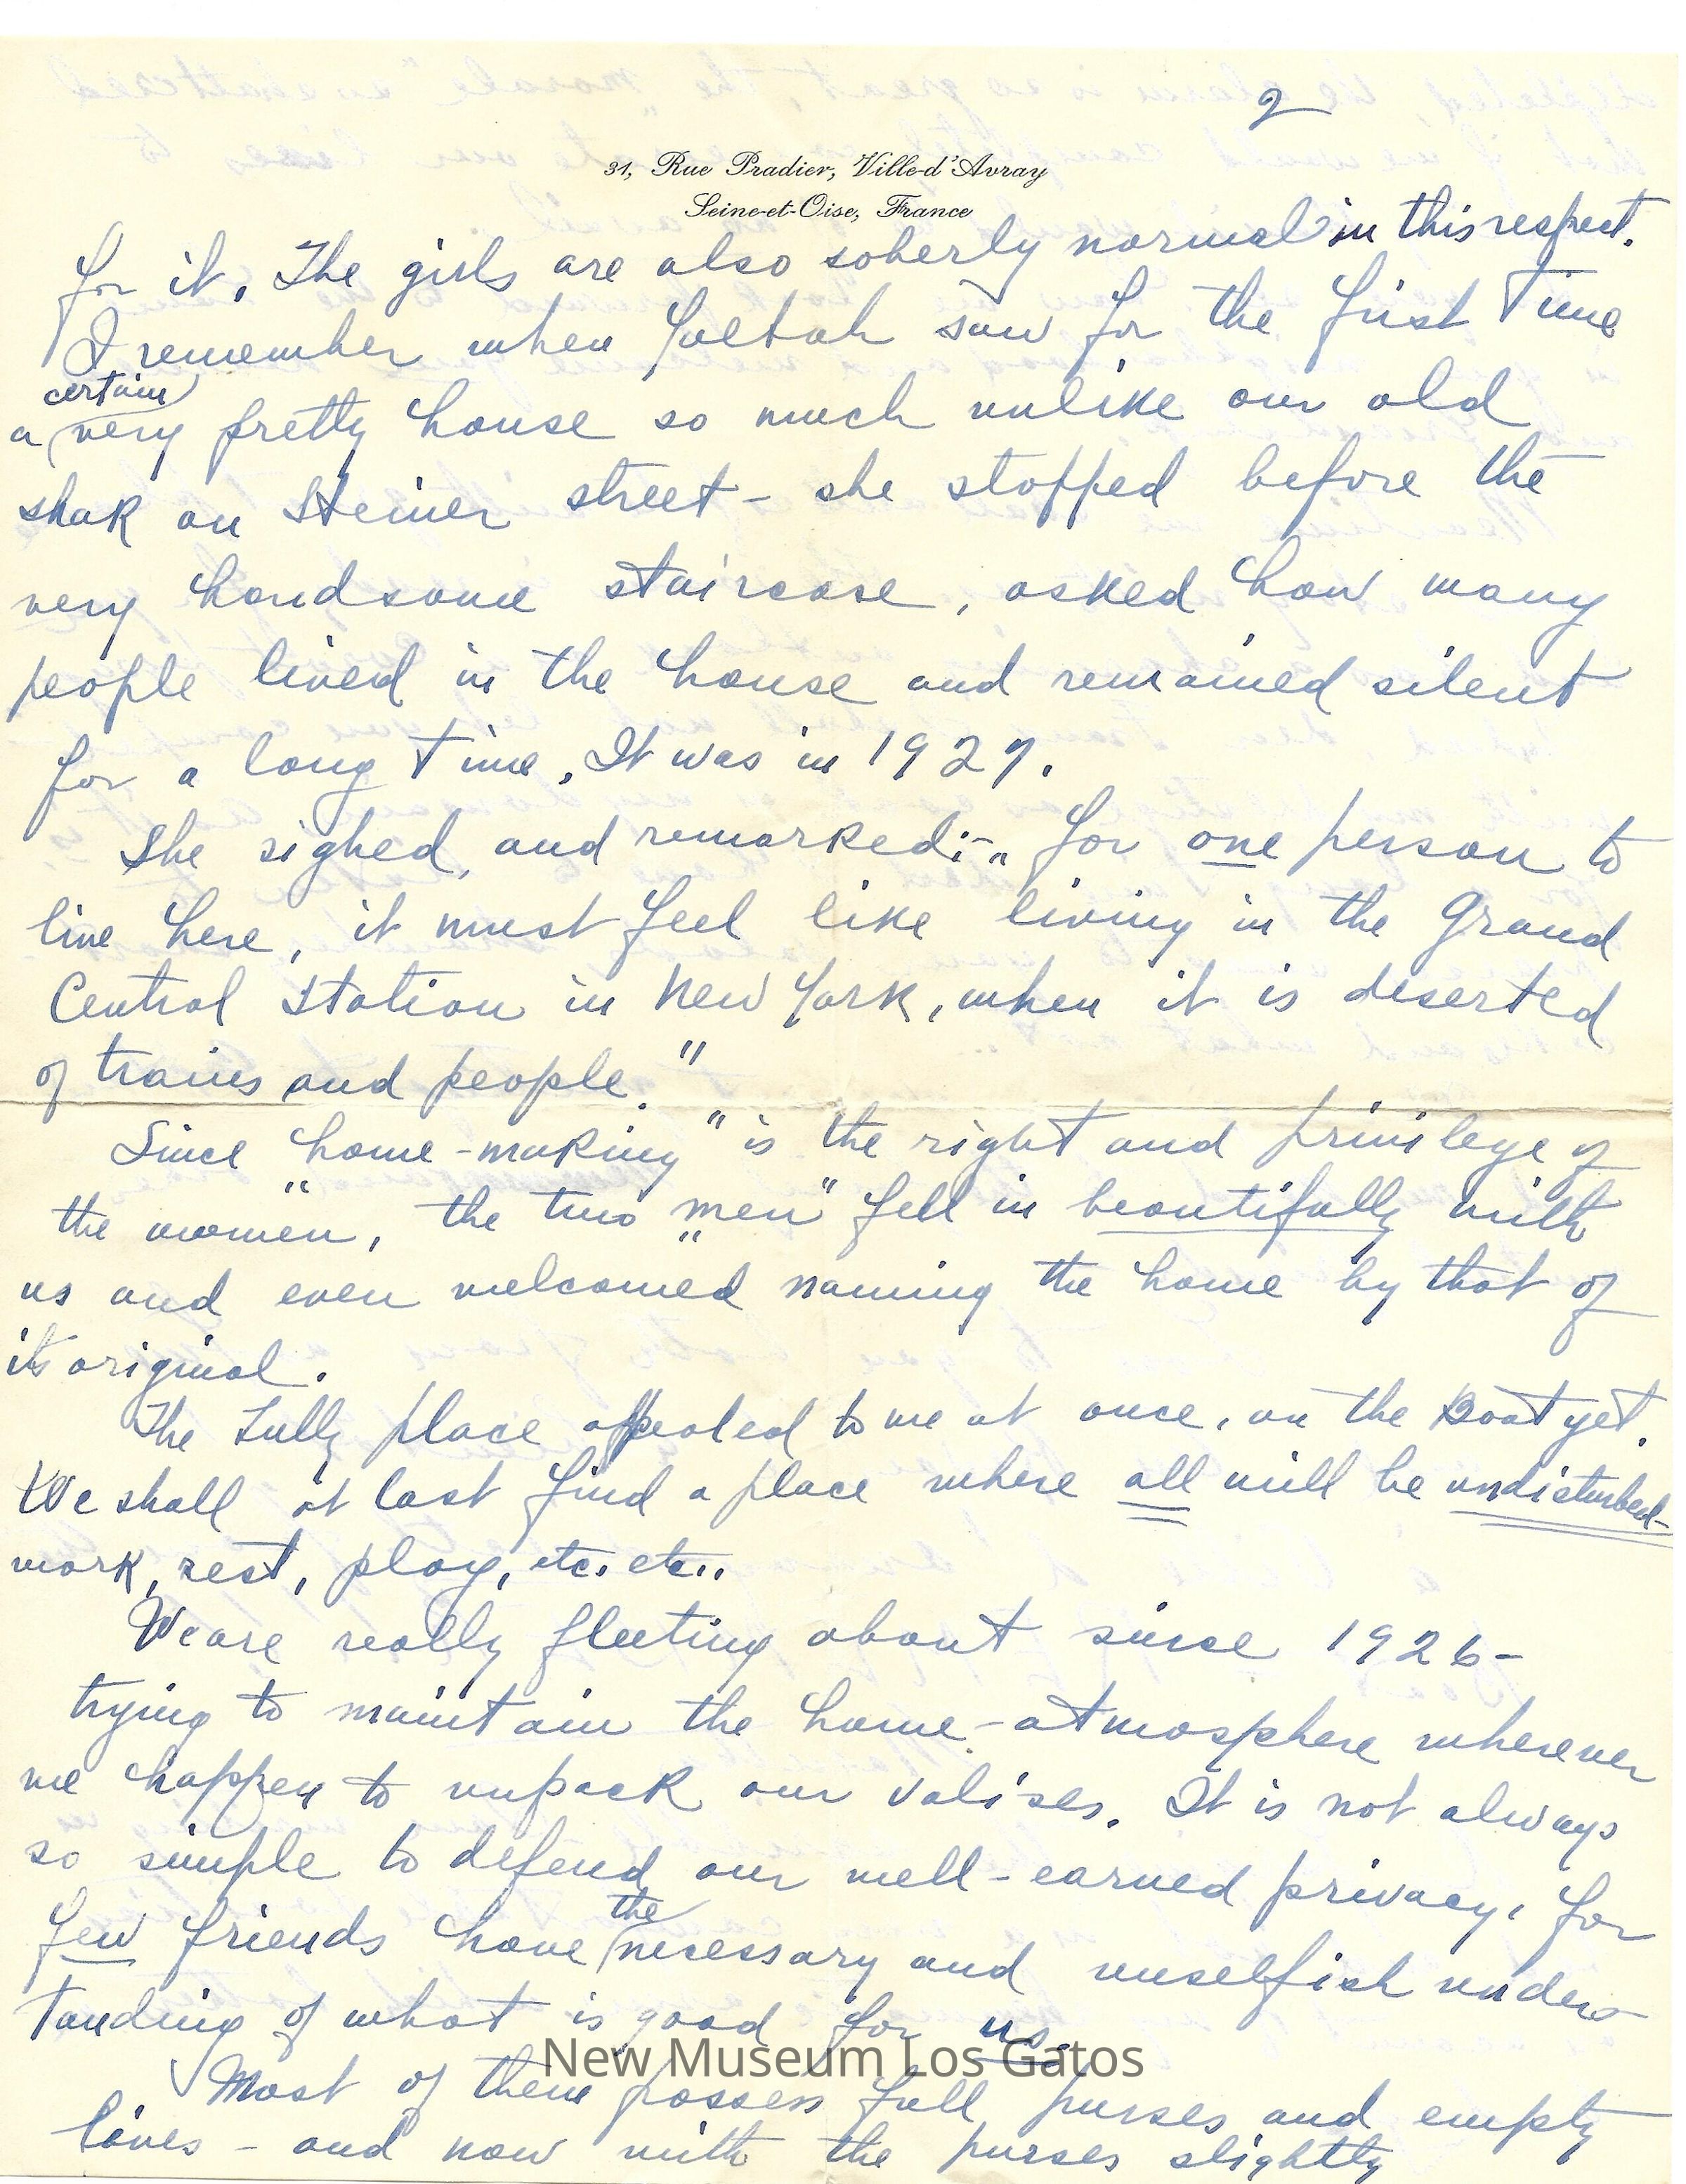 2
31, Rue Pradier, Ville-d'Avray
Seine-et-Oise, France
for it. The girls are also soberly normal in this respect.
I remember when Yaltah saw for the first Time
certain
a very pretty house so much unlike our old
shak on Steiner street - she stopped before the
very handsome staircase, asked how many
people lived in the house and remained silent
for a long time. It was in 1927.
She sighed, and remarked:- „ for one person to
live here, it must feel like living in the Grand
Central Station in New York, when it is deserted
of trains and people."
Since „home-making" is the right and privilege of
the women, the two „men" fell in beautifully with
us and even welcomed naming the home by that of
its original.
The Lully place appealed to me at once, on the Boat yet.
We shall at last find a place where all will be undisturbed-
work, rest, play, etc. etc..
We are really fleeting about since 1926-
trying to maintain the home-atmosphere wherever
we happen to unpack our valises. It is not always
so simple to defend our well-earned privacy, for
the
few friends have necessary and unselfish unders-
tanding of what is good for us.
Most of them possess full purses and empty
lives - and now with the purses slightly
New Museum Los Gatos